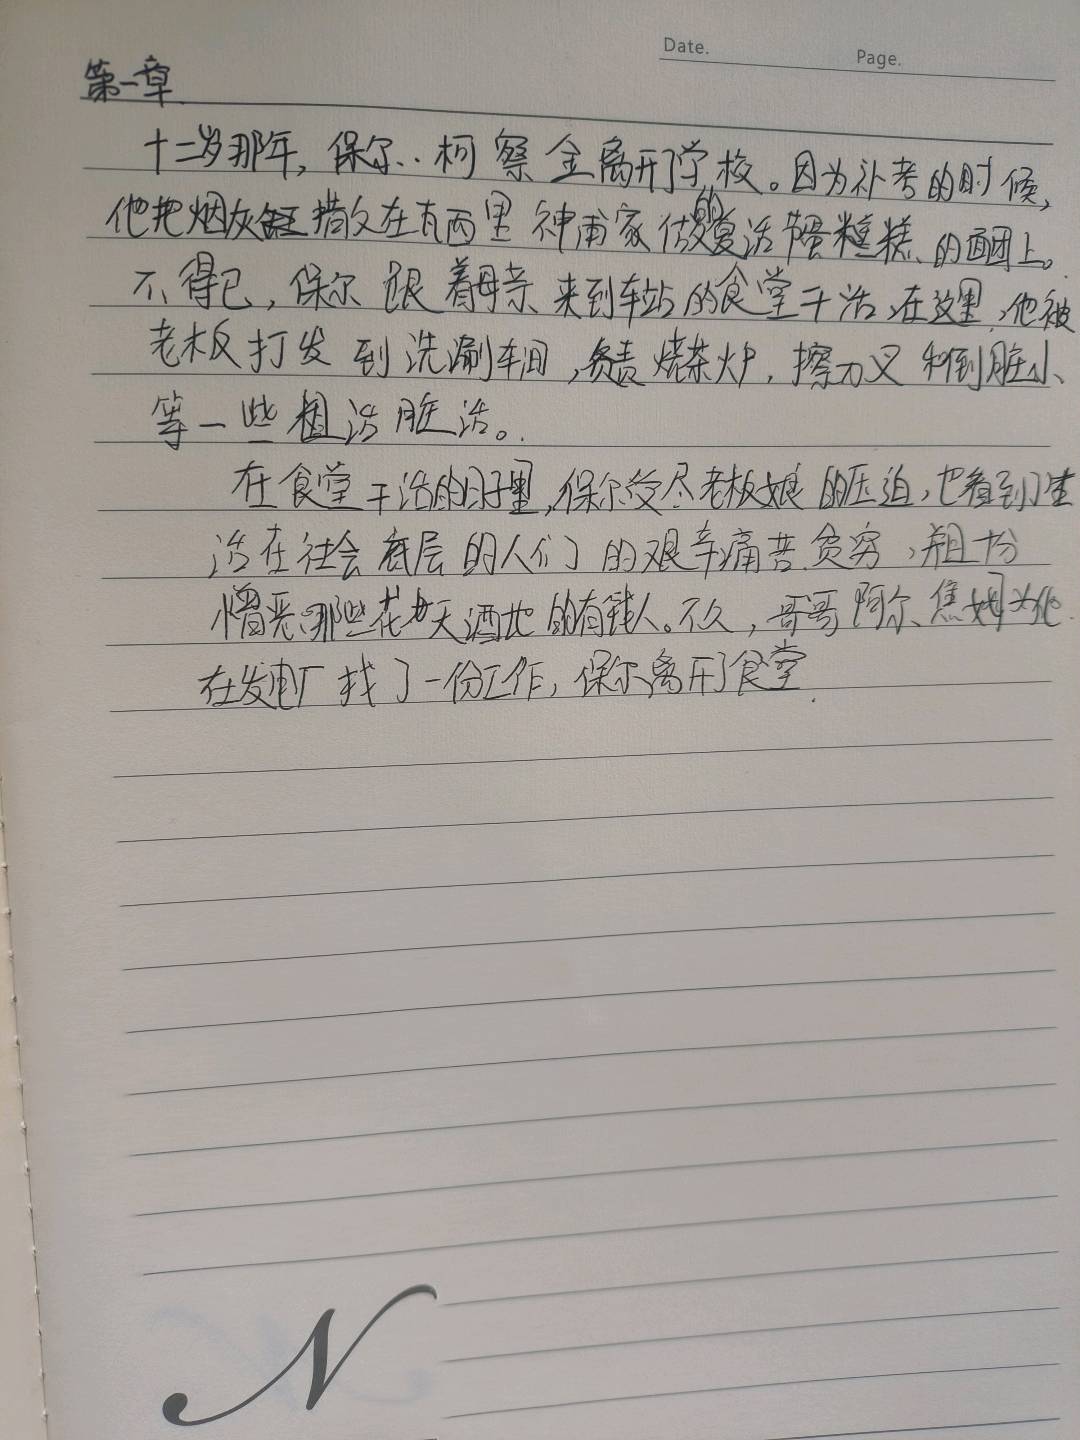 Date.
Page.
第一章
十二岁那年，保尔..柯察金离开了学校。因为补考的时候，
他把烟灰撒在瓦西里神甫家做的复活节蛋糕的面团上。
不得已，保尔跟着母亲来到车站的食堂干活。在这里，他被
老板打发到洗涮车间，负责烧茶炉，擦刀叉和倒脏水
等一些粗活脏活。
在食堂干活的日子里，保尔受尽老板娘的压迫，也看到了生
活在社会底层的人们的艰辛痛苦贫穷，并且十分
憎恶那些花天酒地的有钱人。不久，哥哥阿尔焦姆为他
在发电厂找了一份工作，保尔离开了食堂.
N